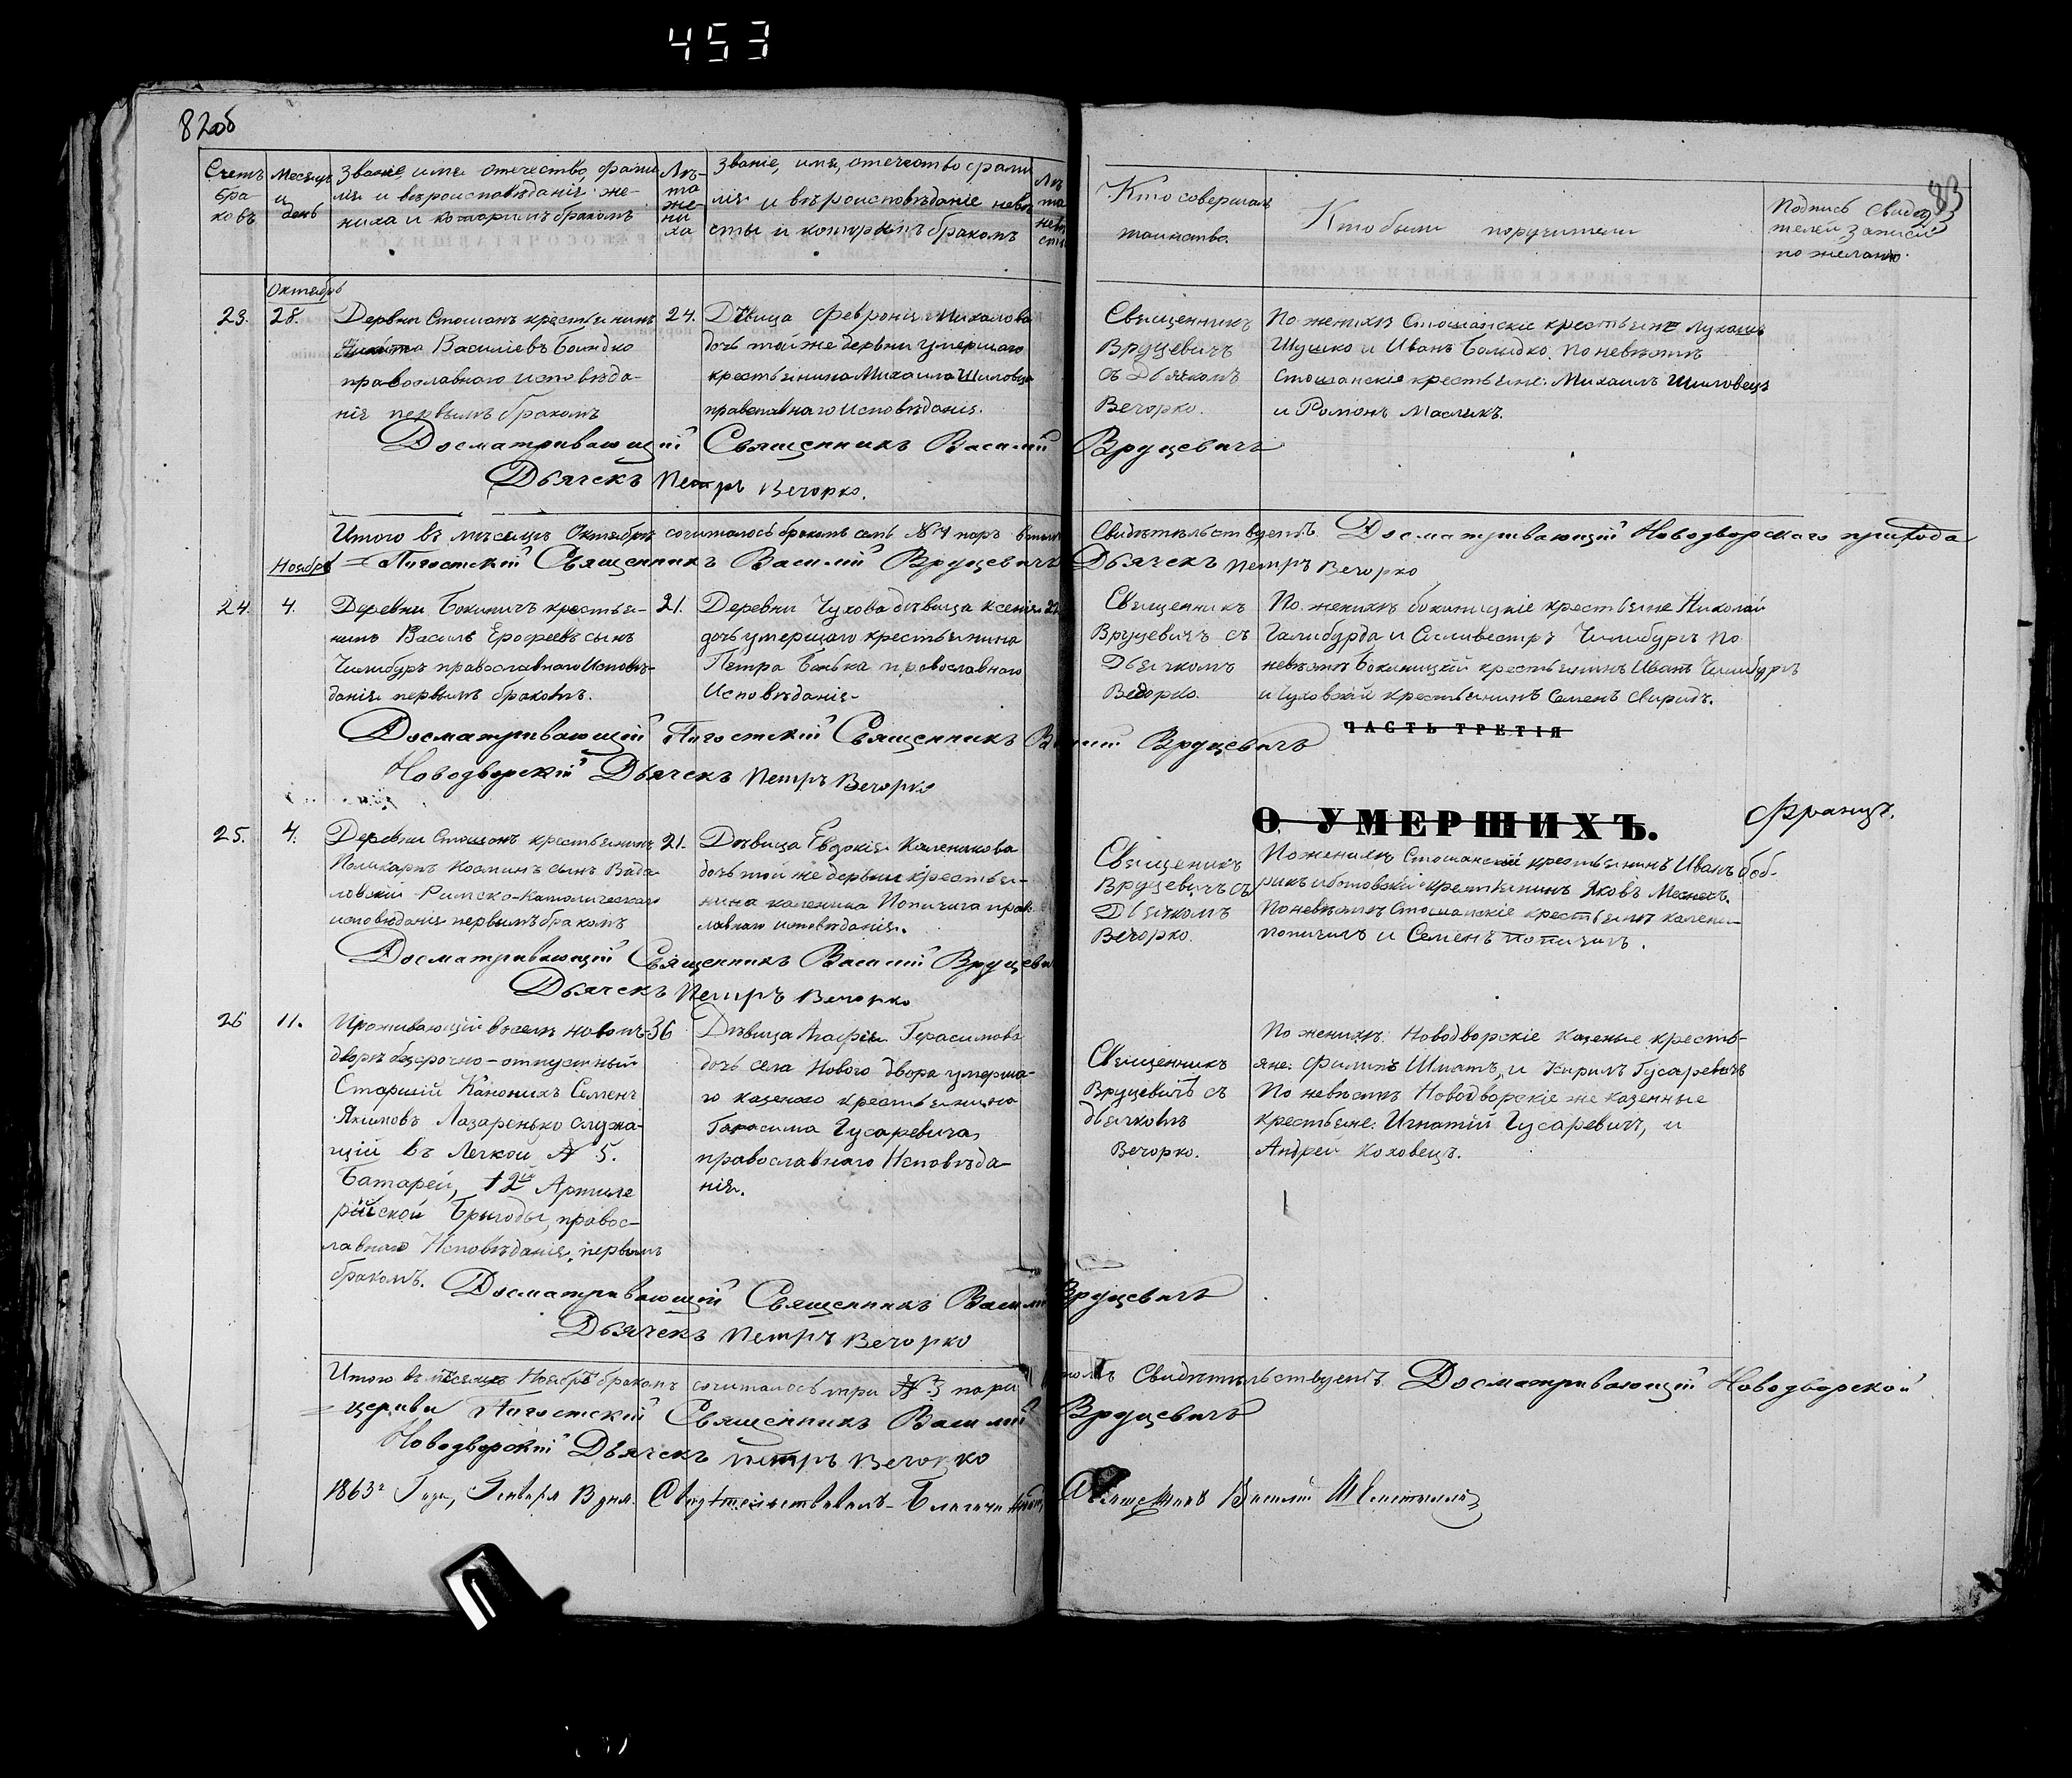 453
82об
83
Счетъ бра-ковъ
Месяцъ и день
Званіе, имя отечество, фами
лія и вѣроисповѣданіе же-
ниха и которымъ бракомъ
Лѣ-та же-ни ха
Званіе, имя, отечество фами
лія и вѣроисповѣданіе невѣ
сты и которымъ бракомъ
Лѣ та невѣ сты
Кто совершалъ
таинство.
Кто были поручители
Подпись свидѣ
телей записи
по желанію.
Октябрь
23.
28.
Деревни Стошанъ крестьянинъ
Василіевъ
православнаго исповѣда-
нія первымъ бракомъ
24.
Дѣвица Февронія Михайлова
дочь той же деревни умершаго
крестьянина Михаила Шиловца
православнаго исповѣданія.
Священникъ
Вруцевичъ
съ Дьячкомъ
Вечорко.
По женихѣ Стошанскіе крестьяне Лукашъ
Шушко и Иванъ По невѣстѣ
Стошанскіе крестьяне: Михаилъ Шиловецъ
и Романъ Маслыкъ.
Досматривающій Священникъ Василій Вруцевичъ
Дьячекъ Петръ Вечорко.
Итого въ мѣсяцѣ Октябрѣ сочиталось бракомъ семь №7 паръ в томъ Свидѣтельствуемъ. Досматривающій Новодворскаго прихода
Ноябрь
Пигостскій Священникъ Василій Вруцевичъ Дьячекъ Петръ Вечорко
24.
4.
Деревни Бокиничъ крестья-
нинъ Василь Ерофеевъ сынъ
Чилибуръ православнаго Исповѣ-
данія первымъ бракомъ.
21.
Деревни Чухова дѣвица Ксенія
дочь умершаго крестьянина
Петра православнаго
Исповѣданія
22
Священникъ
Вруцевичъ съ
Дьячкомъ
Вечорко.
По женихѣ бокиницкіе крестьяне Николай
Галибурда и Сильвестръ Чилибуръ По
невѣстѣ Бокиницкій крестьянинъ Иванъ Чилибуръ
и Чуховскій крестьянинъ Семенъ Свиридъ.
Досматривающій Пигостскій Священникъ Василій Вруцевичъ
Новодворскій Дьячекъ Петръ Вечорко
ЧАСТЬ ТРЕТІЯ
О УМЕРШИХЪ.
Францъ.
25.
4.
Деревни Стошанъ крестьянинъ
Поликарпъ сынъ Вада
ловскій Римско-Католическаго
исповѣданія первымъ бракомъ
21.
Дѣвица Евдокія Каленикова
дочь той же деревни крестья-
нина каленика Попичича прав
славнаго исповѣданія.
Священникъ
Вруцевичъ съ
Дьячкомъ
Вечорко.
По женихѣ Стошанскій крестьянинъ Иванъ боб-
рикъ и крестьянинъ Яковъ
По невѣстѣ Стошанскіе крестьяне калени-
Попичичъ и Семенъ попичичъ.
Досматривающій Священникъ Василій Вруцеви
Дьячекъ Петръ Вечорко
26
11.
Проживающій въ селѣ новомъ
дворѣ безсрочно-отпускный
Старшій Канониръ Семенъ
Якимовъ Лазаренько служа-
щій въ Легкой № 5.
Батареи, 12й Артиле
рійской Бригады, правос-
лавнаго Исповѣданія, первымъ
бракомъ.
36
Дѣвица Агафія Герасимова
дочь села Нового двора умерша-
го казеного крестьянина
Гарасима Гусаревича,
православнаго Исповѣда-
нія.
Священникъ
Вруцевичъ съ
дьячкомъ
Вечорко.
По женихѣ: Новодворскіе казеные кресть-
яне: Филипъ Шматъ, и Кирилъ Гусаревичъ
По невѣстѣ Новодворскіе же казенные
крестьяне: Игнатій Гусаревичъ, и
Андрей Коховецъ.
Досматривающій Священникъ Василій Вруцевичъ
Дьячекъ Петръ Вечорко
Итого въ месяцѣ Ноябрѣ бракомъ сочиталось три № 3 пары томъ Свидѣтельствуемъ. Досматривающій Новодворской
церкви Пигостскій Священникъ Василій Вруцевичъ
Новодворскій Дьячекъ Петръ Вечорко
1863го Года, Генваря В дня. Свидѣтельствовалъ Благочинный, Священникъ Василій